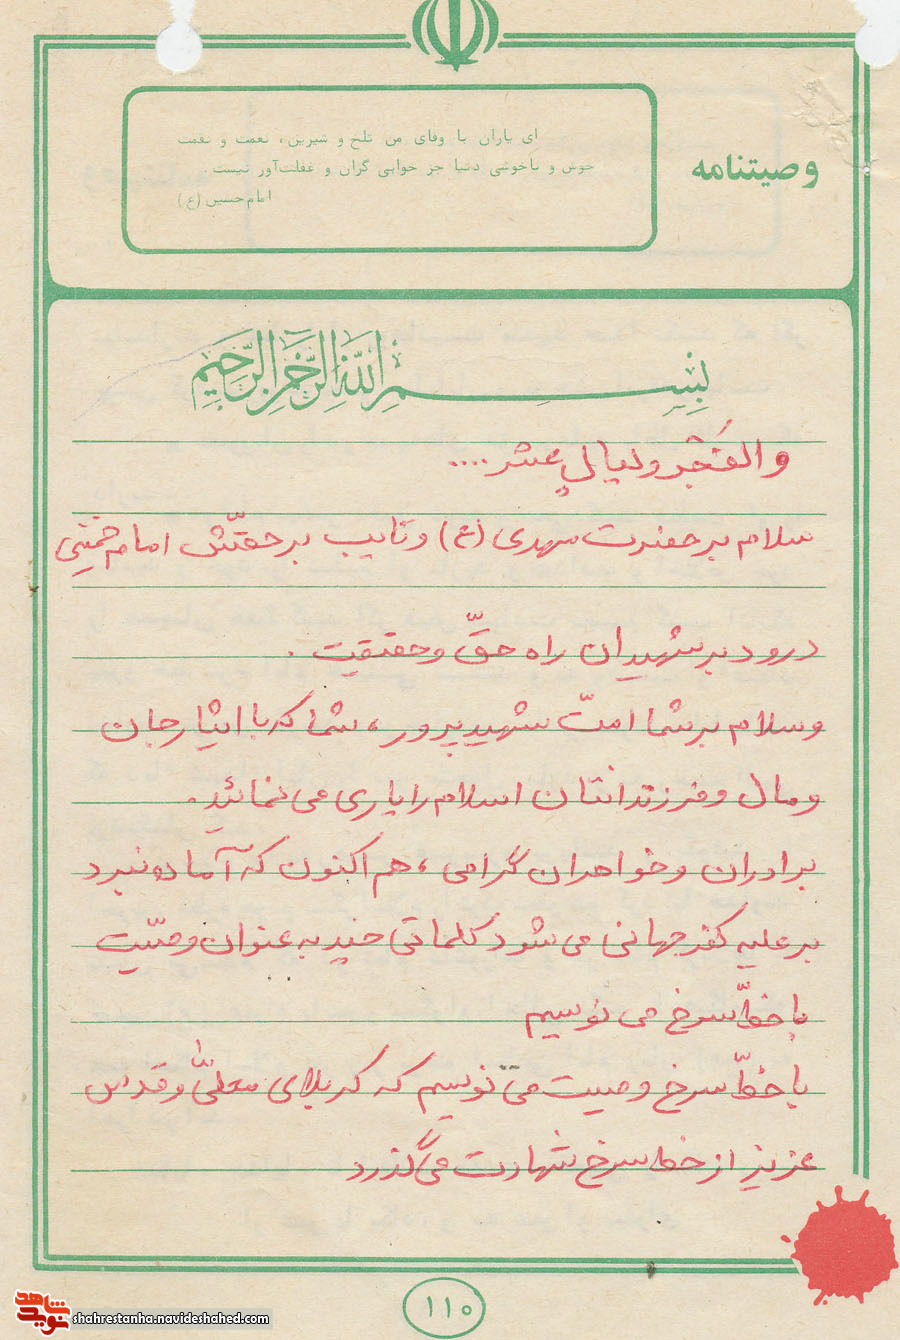 وصیتنامه
ای یاران با وفای من تلخ و شیرین، نعمت و نقمت
خوش و ناخوشی دنیا جز خوابی گران و غفلت‌آور نیست
امام حسین (ع)
بسم الله الرحمن الرحیم
والفَجْر ولیالٍ عشر....
سلام بر حضرت مهدی (عج) و نایب بر حقّش امام خمینی
درود بر شهیدان راه حقّ و حقیقت.
وسلام بر شما امتّ شهید پرور، شما که با ایثار جان
ومال و فرزندانتان اسلام را یاری می نمائید.
برادران و خواهران گرامی، هم اکنون که آماده نبرد
بر علیه کفر جهانی می شود کلماتی چند به عنوان وصیّت
با خطّ سرخ می نویسم
با خطّ سرخ وصیت می نویسم که کربلای معلیّ و قدس
عزیز از خط سرخ شهادت می گذرد
۱۱۰
نوید شاهد
shahrestanha.navideshahed.com